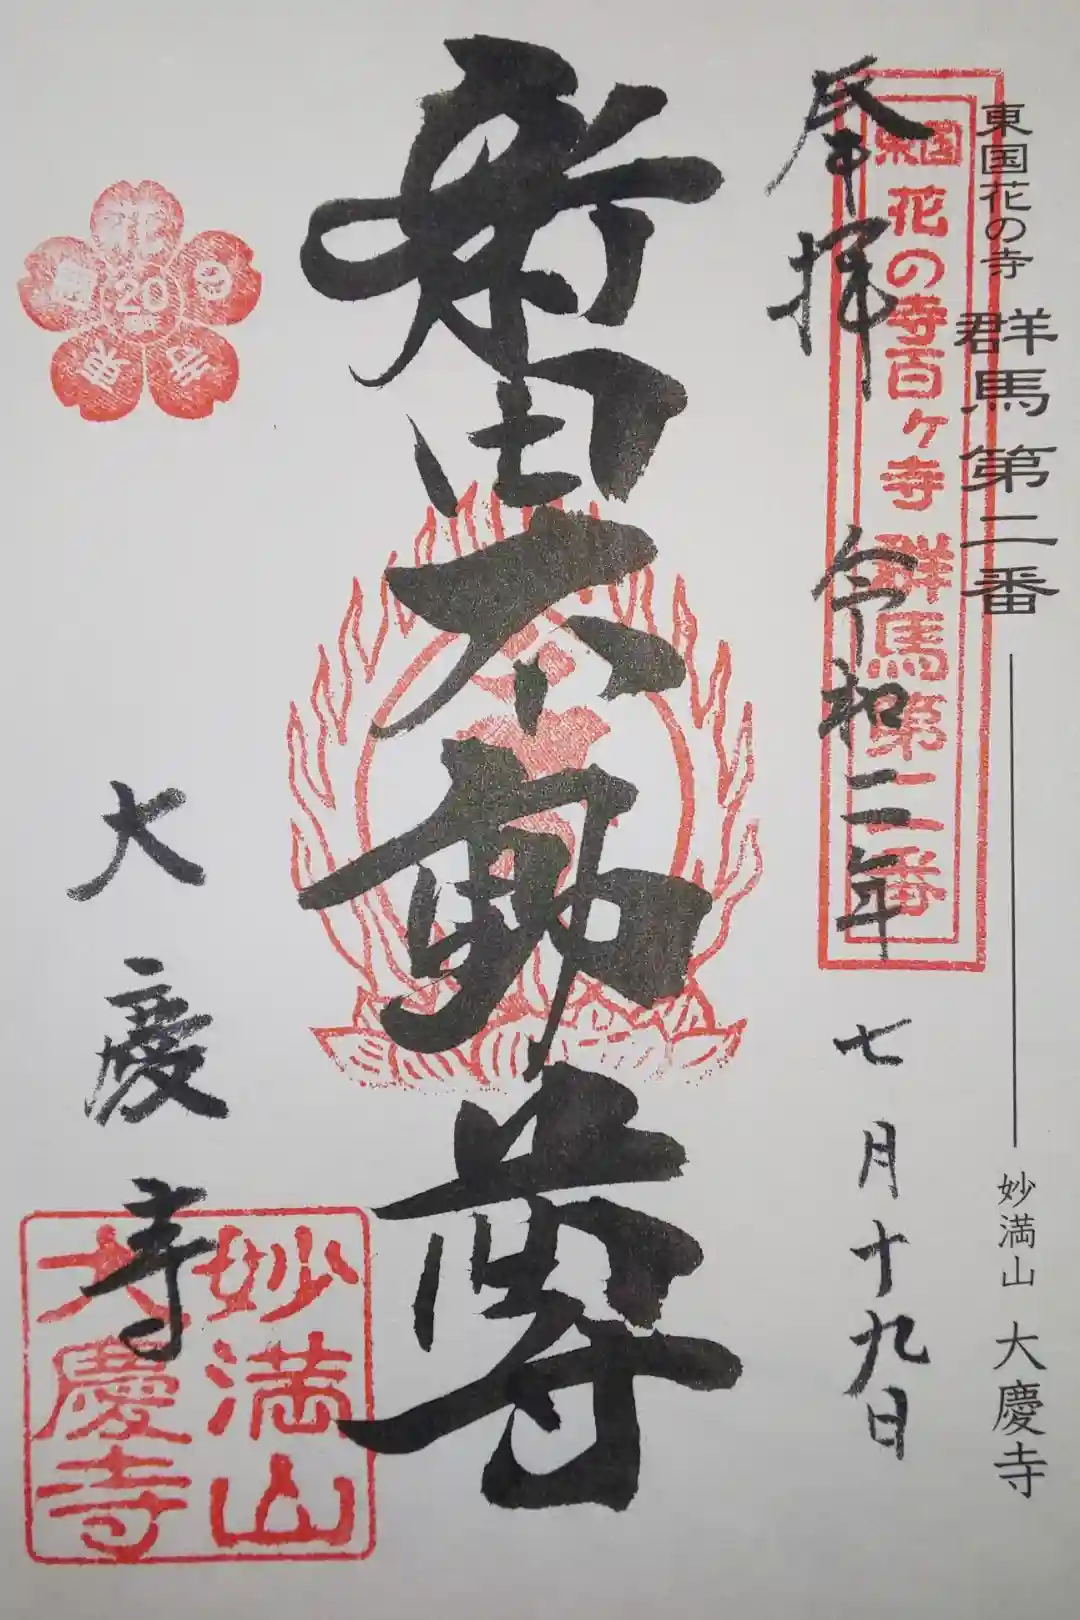 東国花の寺 群馬第二番 妙満山 大慶寺
東国花の寺百ヶ寺 群馬第二番
奉拝 令和二年 七月十九日
新田不動尊
大慶寺
妙満山
大慶寺
花
20
東